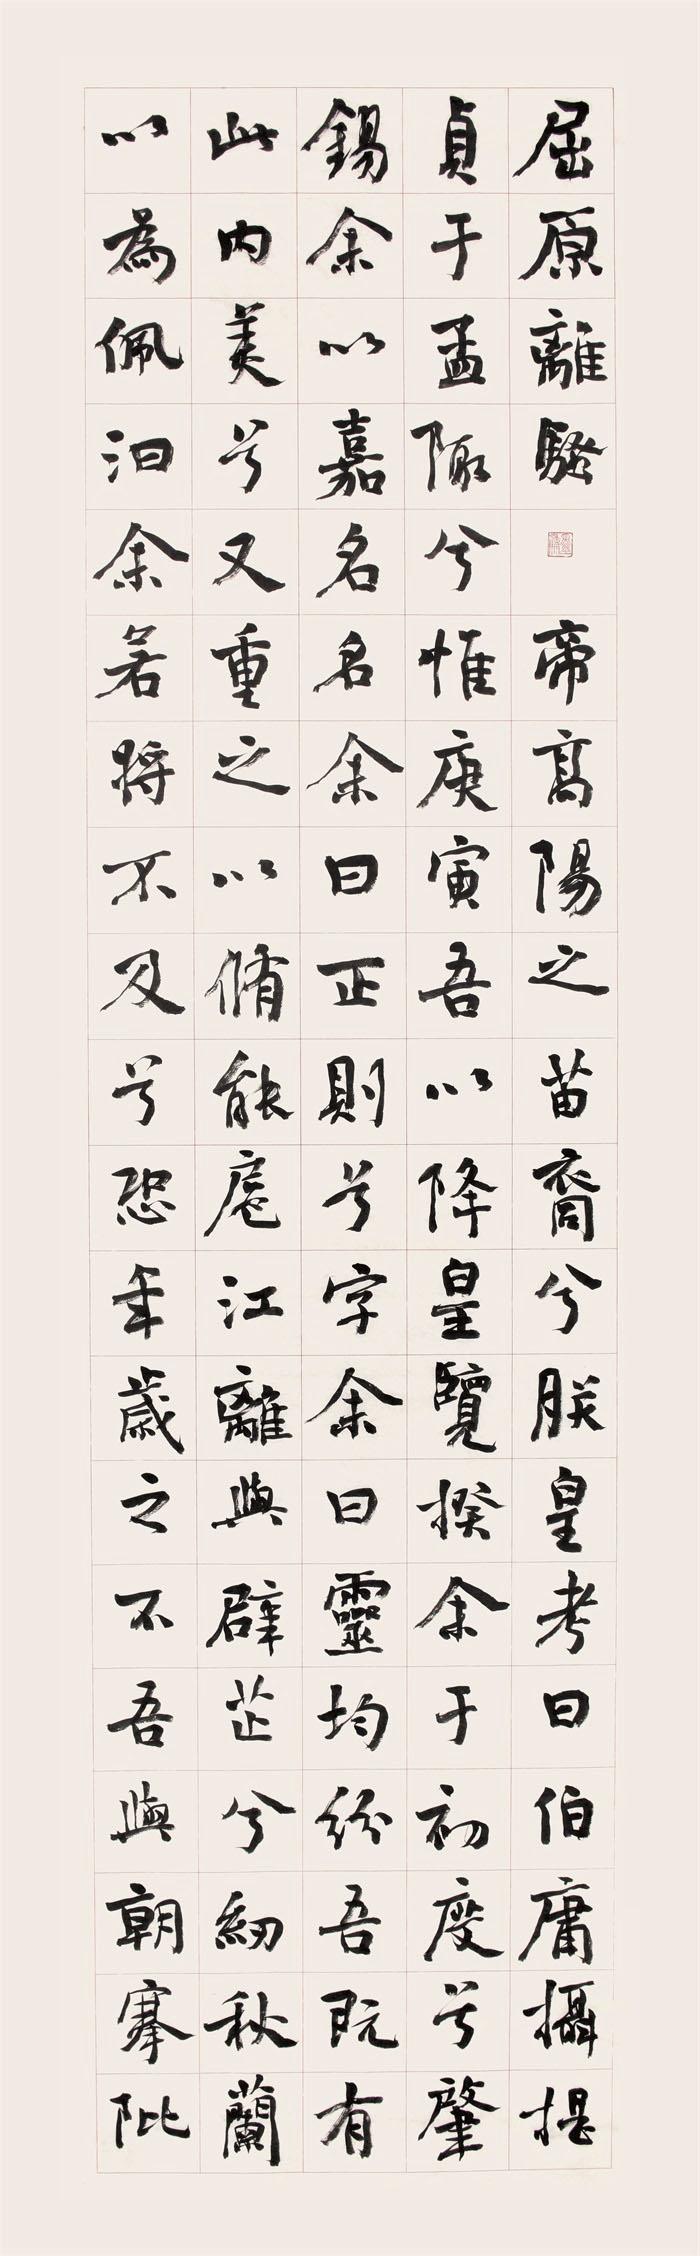 屈原離騷帝高陽之苗裔兮朕皇考曰伯庸攝提
貞于孟陬兮惟庚寅吾以降皇覽揆余于初度兮肇
錫余以嘉名名余曰正則兮字余曰靈均紛吾既有
此内美兮又重之以脩能扈江離與辟芷兮紉秋蘭
以為佩汩余若將不及兮恐年歲之不吾與朝搴阰